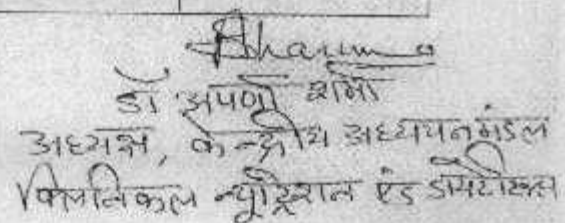 डॉ अपर्णा शर्मा
अध्यक्ष, केन्द्रीय अध्ययन मंडल
क्लिनिकल न्यूट्रिशन एंड डायटेटिक्स